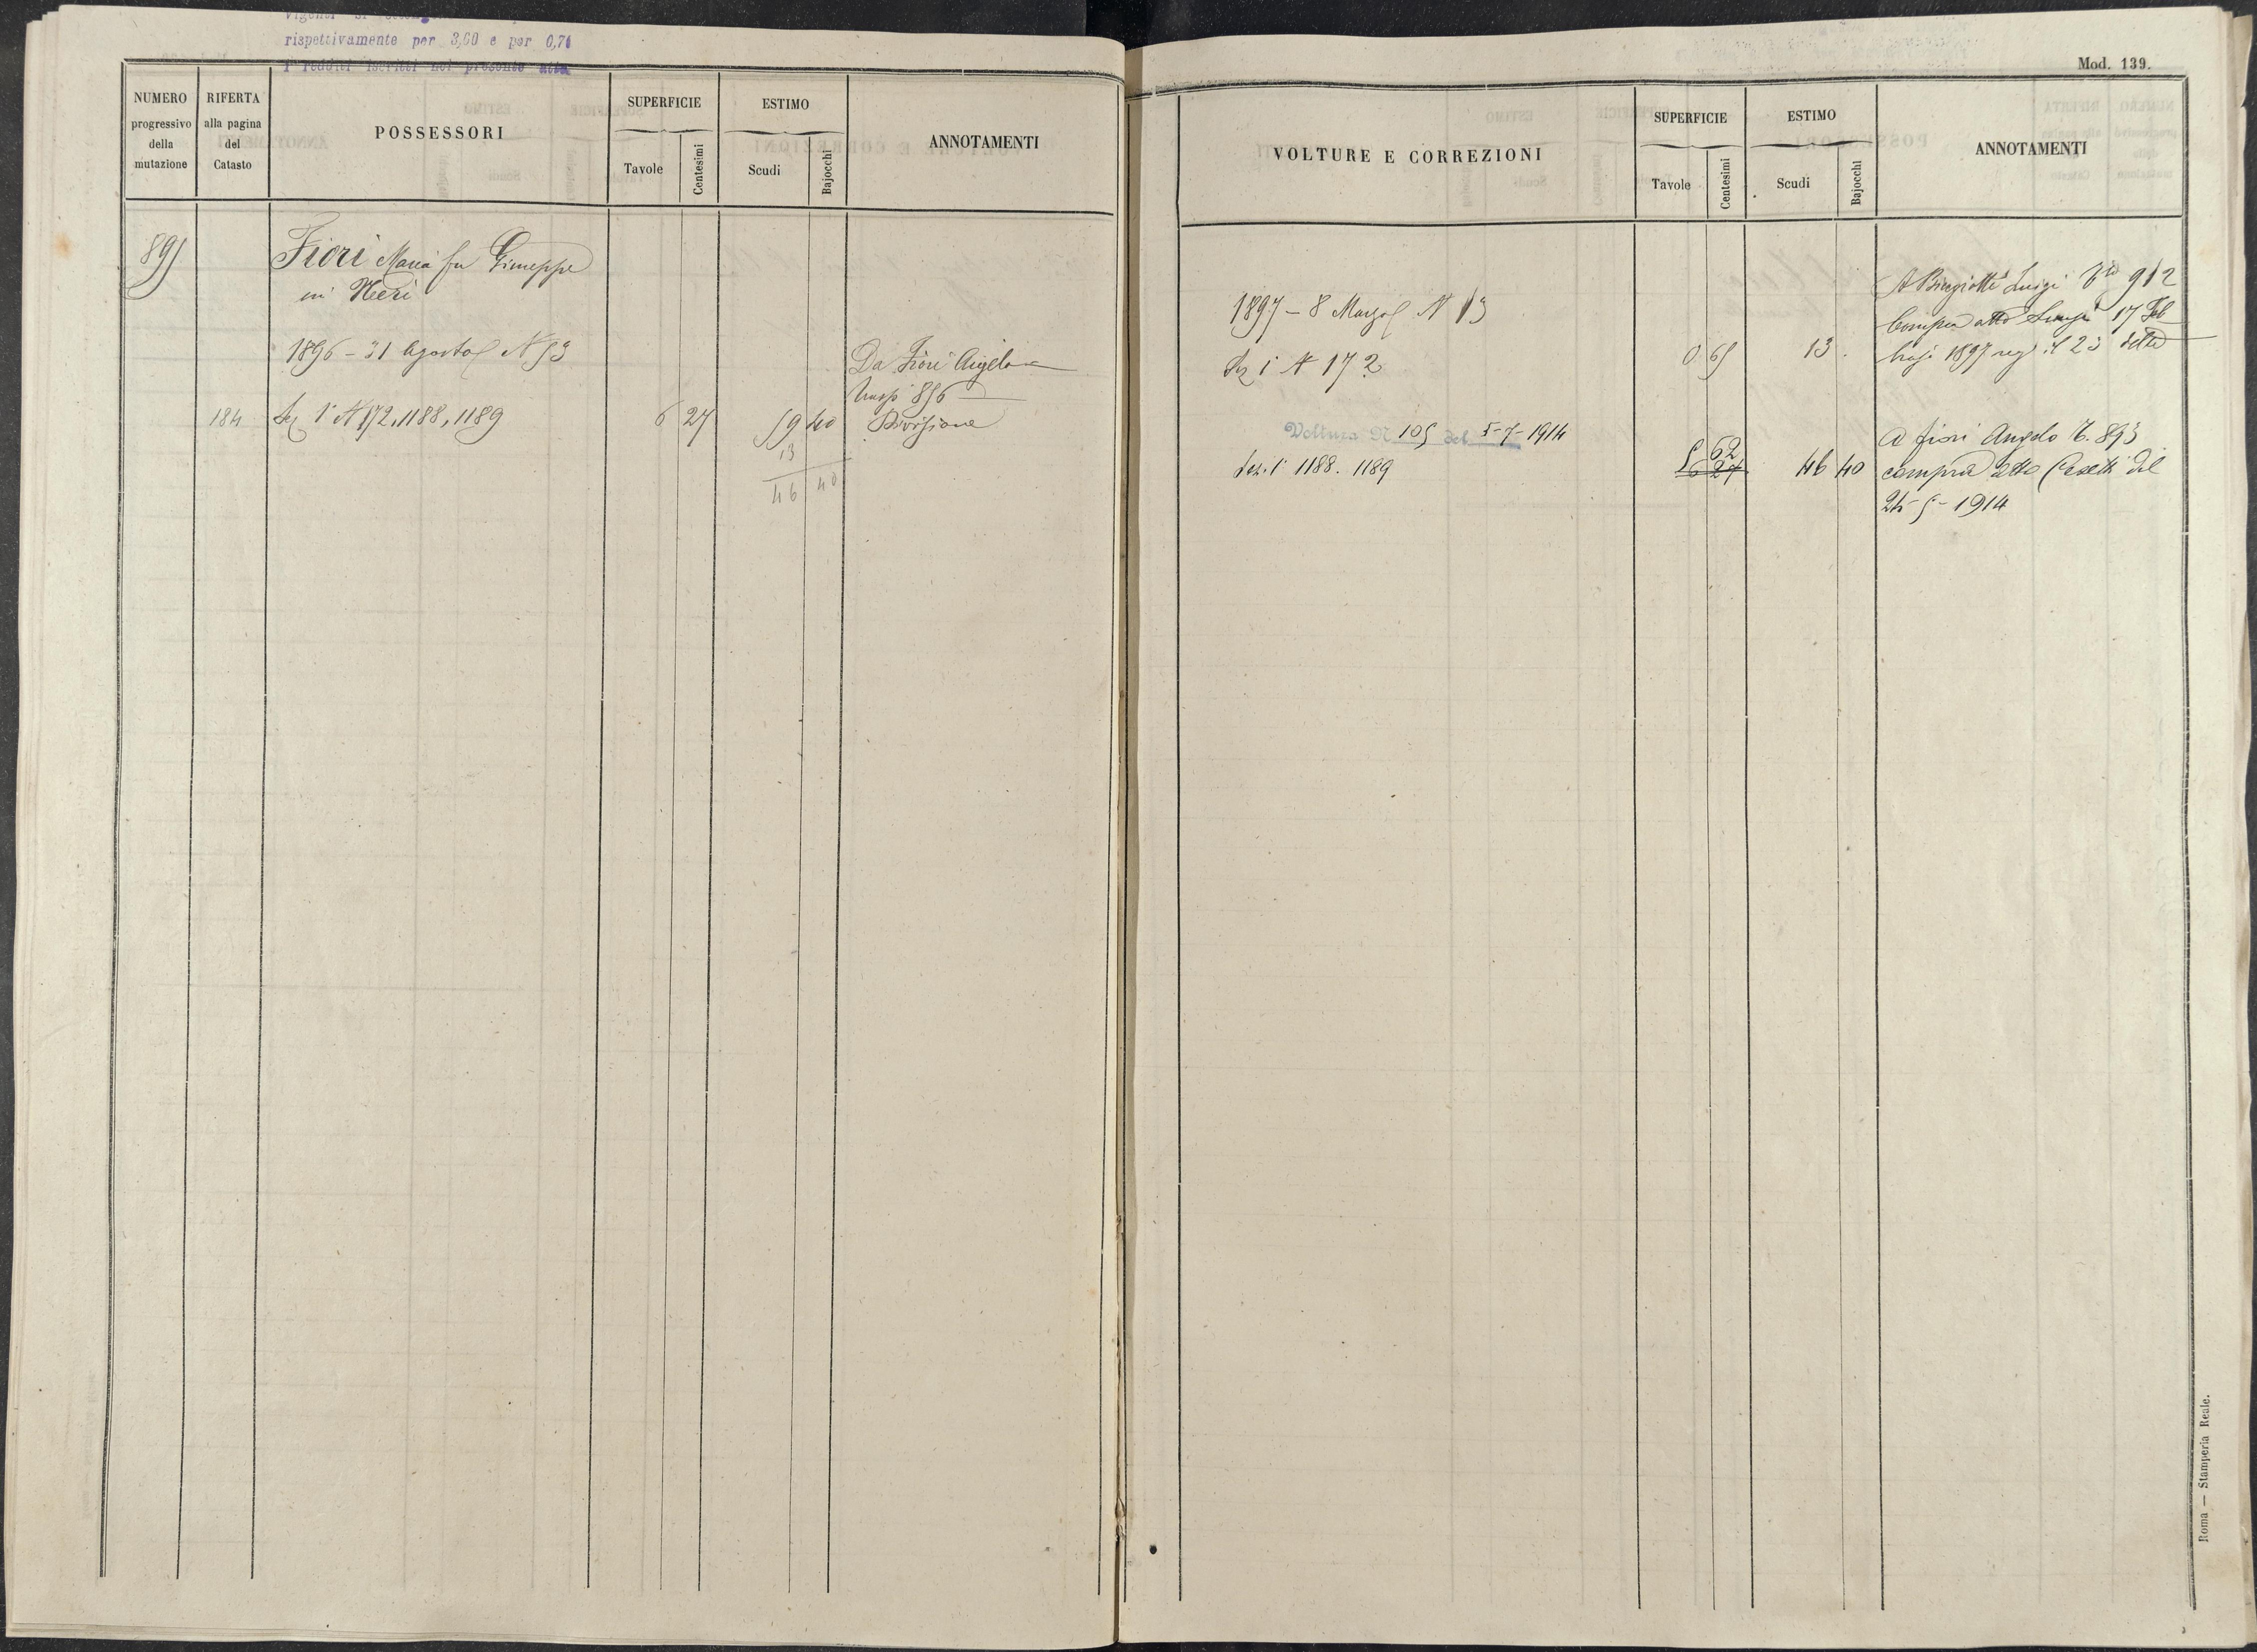 rispettivamente per 3,60 e per 0,71
I redditi iscritti nel presente atto
NUMERO progressivo della mutazione
RIFERTA alla pagina del Catasto
POSSESSORI
SUPERFICIE
Tavole
Centesimi
ESTIMO
Scudi
Bajocchi
ANNOTAMENTI
895
Fiori Maria fu Giuseppe
in Neri
1896 - 31 Agosto N 53
Da Fiori Angelo
856
184 Sez 1ª N 172, 1188, 1189 6 27 59 40 Divisione
13
46 40
Mod. 139.
VOLTURE E CORREZIONI
SUPERFICIE
Tavole
Centesimi
ESTIMO
Scudi
Bajocchi
ANNOTAMENTI
A Luigi 912
1897 - 8 Marzo N 13
Compra atto 17 Feb
Sez 1 N 172 0 65 13 . 1897 reg il 23 detto
Voltura N 105 del 5-7-1914
A Fiori Angelo T. 893
5 62
Sez. 1ª 1188. 1189 6 27 46 40 compra atto del
24-5-1914
Roma — Stamperia Reale.